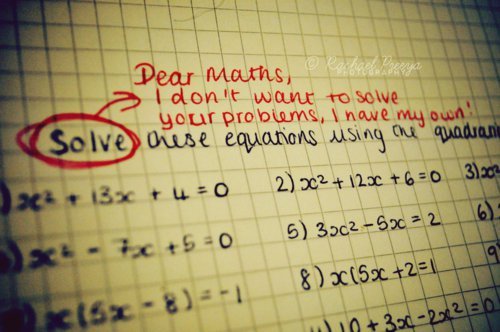 © Rachael Preeya
PHOTOGRAPHY
Dear Maths,
I don't want to solve
your problems, I have my own!
Solve these equations using the
) x² + 13x + 4 = 0 2) x² + 12x + 6 = 0 3)
) x² - 7x + 5 = 0 5) 3x² - 5x = 2 6)
x(5x - 8) = -1 8) x(5x + 2 = 1
10 + 3x - 2x² = 0